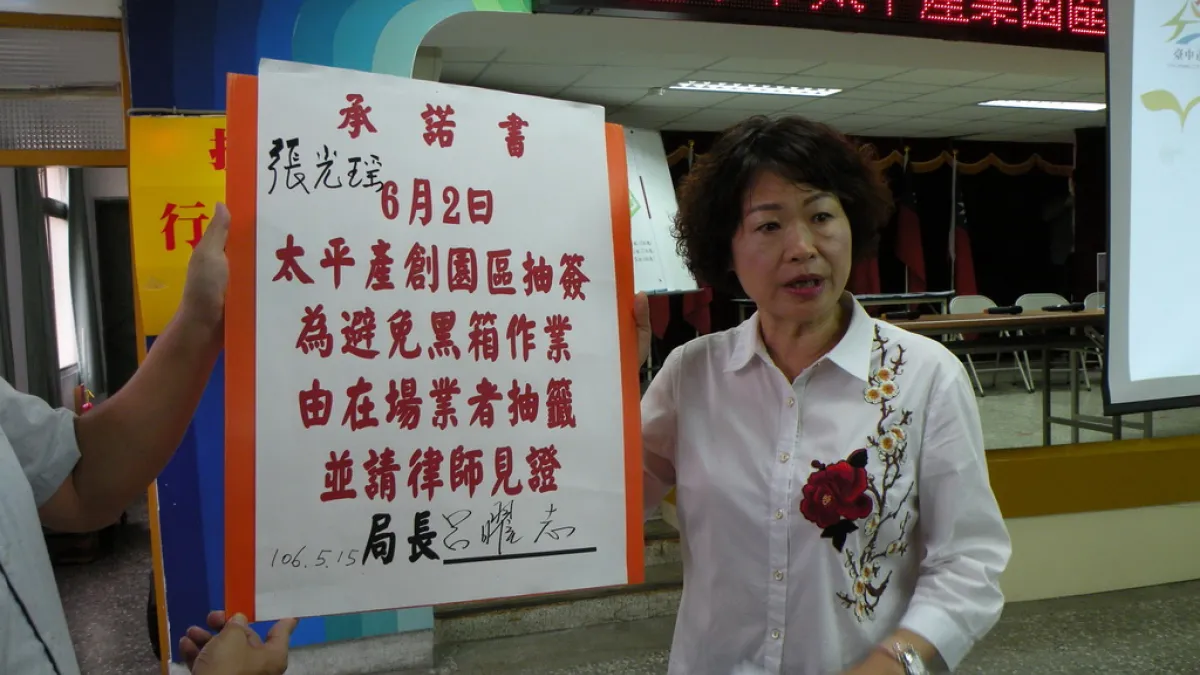 太平產業園區
臺中
行
承諾書
張光瑤
6月2日
太平產創園區抽簽
為避免黑箱作業
由在場業者抽籤
並請律師見證
局長 呂曜志
106.5.15